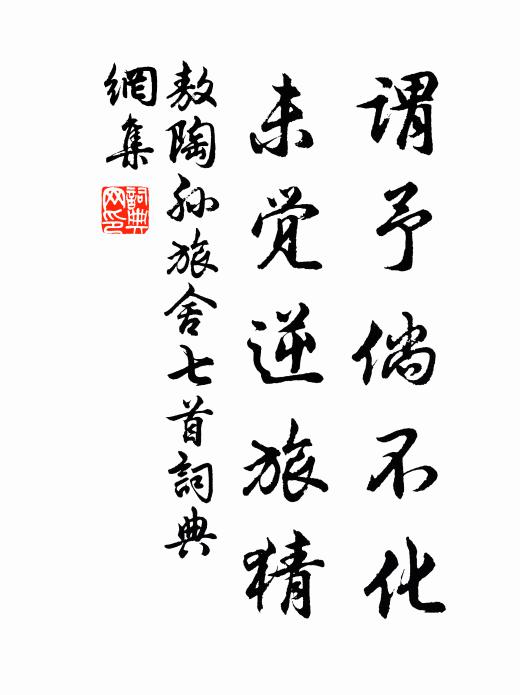 謂予倘不化
未觉逆旅猜
敖陶孙旅舍七首詞典
網集
詞典网印